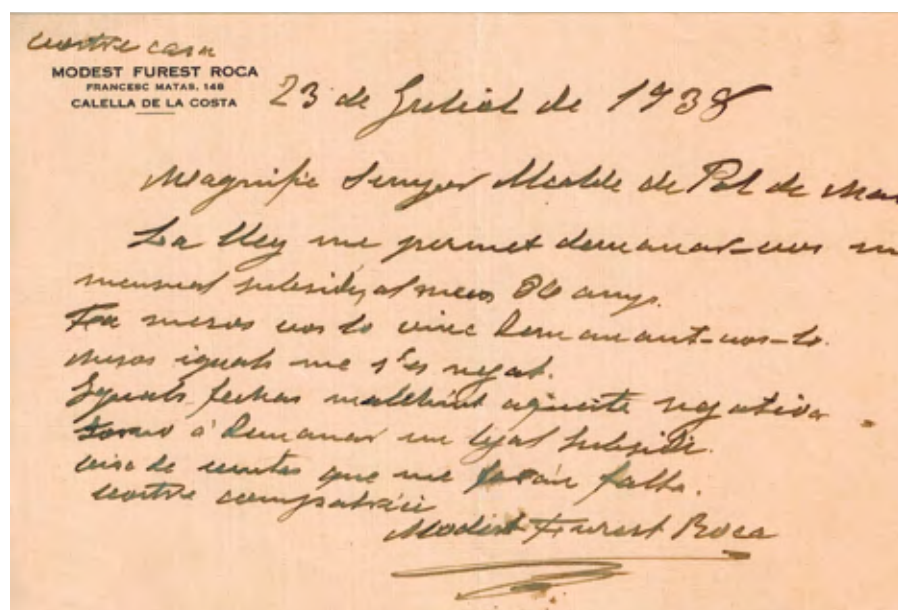 vostre casa
MODEST FUREST ROCA
FRANCESC MATAS, 148
CALELLA DE LA COSTA
23 de Juliol de 1938
Magnific Senyor Alcalde de Pol de Mar
La lley me permet demanar-vos un
mensual subsidi, al meus 80 anys.
Fa mesos vos lo vinc demanant-vos-lo.
Mesos iguals me s'es negat.
Iguals fechas malehint aqueste negativa
torno á demanar un legal subsidi.
de que me farán falta.
vostre compatrici
Modest Furest Roca